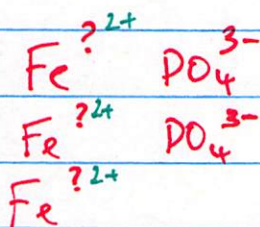 Fe ? 2+ PO₄ 3-
Fe ? 2+ PO₄ 3-
Fe ? 2+